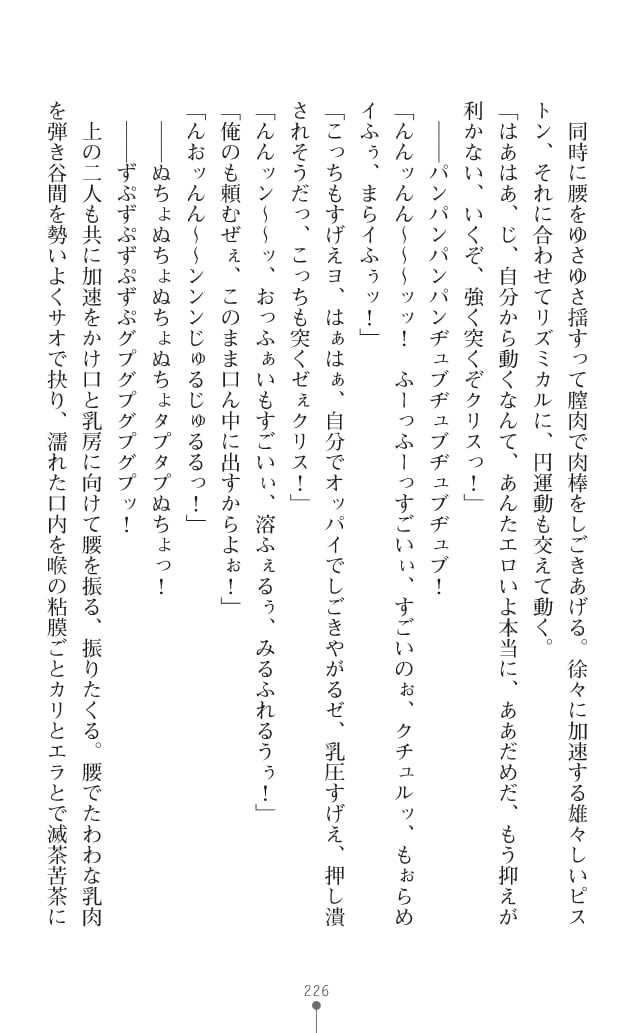 同時に腰をゆさゆさ揺すって膣肉で肉棒をしごきあげる。徐々に加速する雄々しいピス
トン、それに合わせてリズミカルに、円運動も交えて動く。
「はあはあ、じ、自分から動くなんて、あんたエロいよ本当に、ああだめだ、もう抑えが
利かない、いくぞ、強く突くぞクリスっ！」
　――パンパンパンパンヂュブヂュブヂュブヂュブ！
「んんッんん～～～ッッ！　ふーっふーっすごいぃ、すごいのぉ、クチュルッ、もぉらめ
イふぅ、まらイふぅッ！」
「こっちもすげえョ、はぁはぁ、自分でオッパイでしごきやがるゼ、乳圧すげえ、押し潰
されそうだっ、こっちも突くゼぇクリス！」
「んんッン～～ッ、おっふぁいもすごいぃ、溶ふぇるぅ、みるふれるうぅ！」
「俺のも頼むぜぇ、このまま口ん中に出すからよぉ！」
「んおッんん～～ンンンじゅるじゅるるっ！」
　――ぬちょぬちょぬちょぬちょタプタプぬちょっ！
　――ずぷずぷずぷずぷグプグプグプグプッ！
　上の二人も共に加速をかけ口と乳房に向けて腰を振る、振りたくる。腰でたわわな乳肉
を弾き谷間を勢いよくサオで抉り、濡れた口内を喉の粘膜ごとカリとエラとで滅茶苦茶に
226